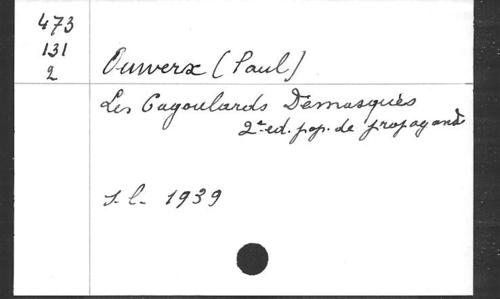 473
131
2
Ouwerx (Paul)
Les Cagoulards Démasqués
2e ed. pop. de propagande
s.l. 1939